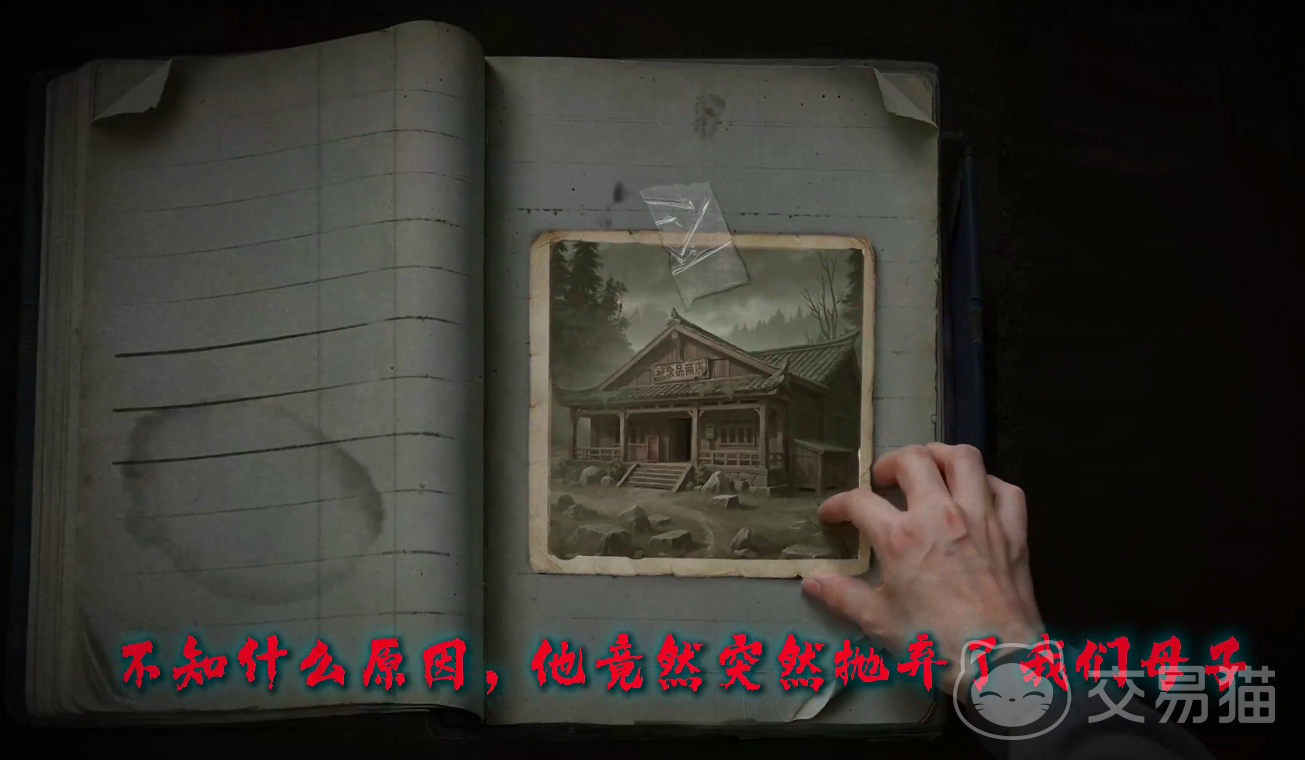 不知什么原因，他竟然突然抛弃了我们母子
交易猫